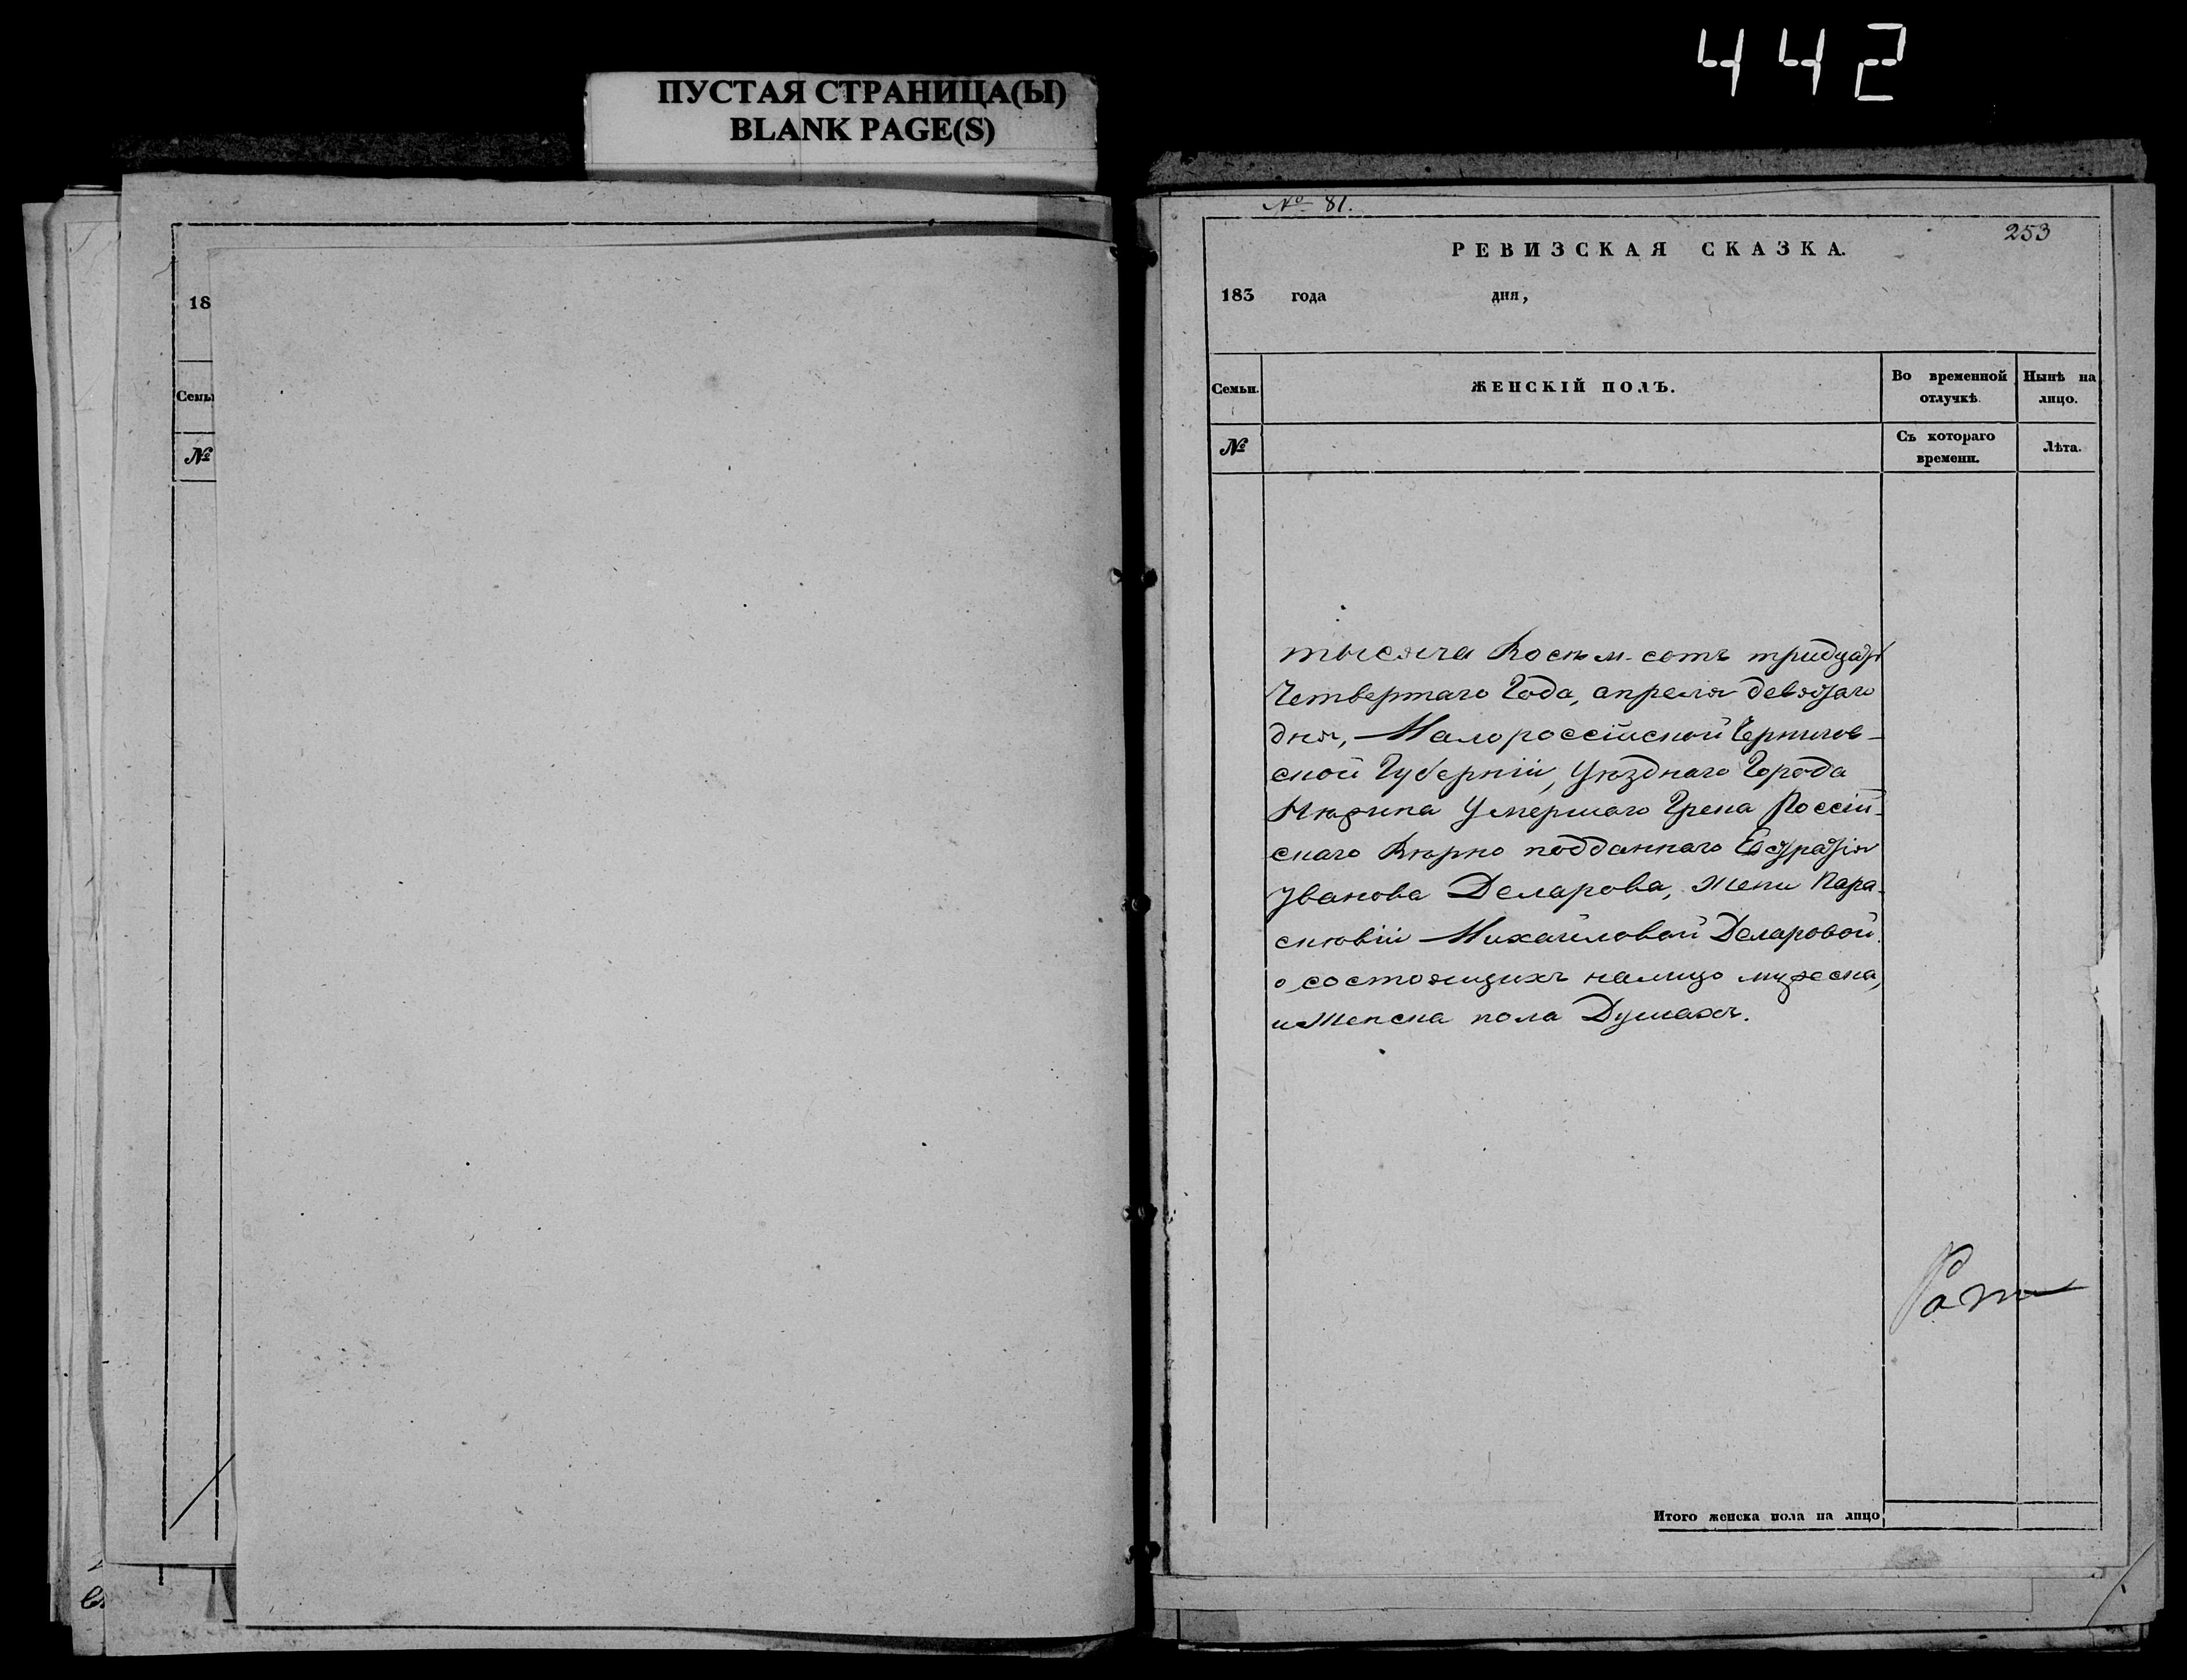 442
ПУСТАЯ СТРАНИЦА(Ы)
BLANK PAGE(S)
18
Семьи
№
№ 81.
253
РЕВИЗСКАЯ СКАЗКА.
183 года дня,
Семьи.
ЖЕНСКІЙ ПОЛЪ.
Во временной отлучкѣ.
Нынѣ на лицо.
№
Съ котораго времени.
Лѣта.
тысяча восьм-сотъ тридцать
Четвертаго Года, апреля девятаго
дня, Малороссійской Чернигов-
ской Губерніи, Уѣзднаго Города
Нѣжина Умершаго Грека Россій-
скаго Вѣрно подданнаго Евстратія
Иванова Деларова, жени Пара-
скювіи Михайловой Деларовой
о состоящихъ налицо мужеска,
и женска пола Душахъ.
Итого женска пола на лицо